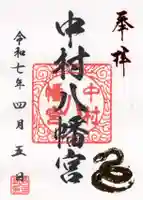 奉拝
中村八幡宮
中村
八幡宮
令和七年四月五日